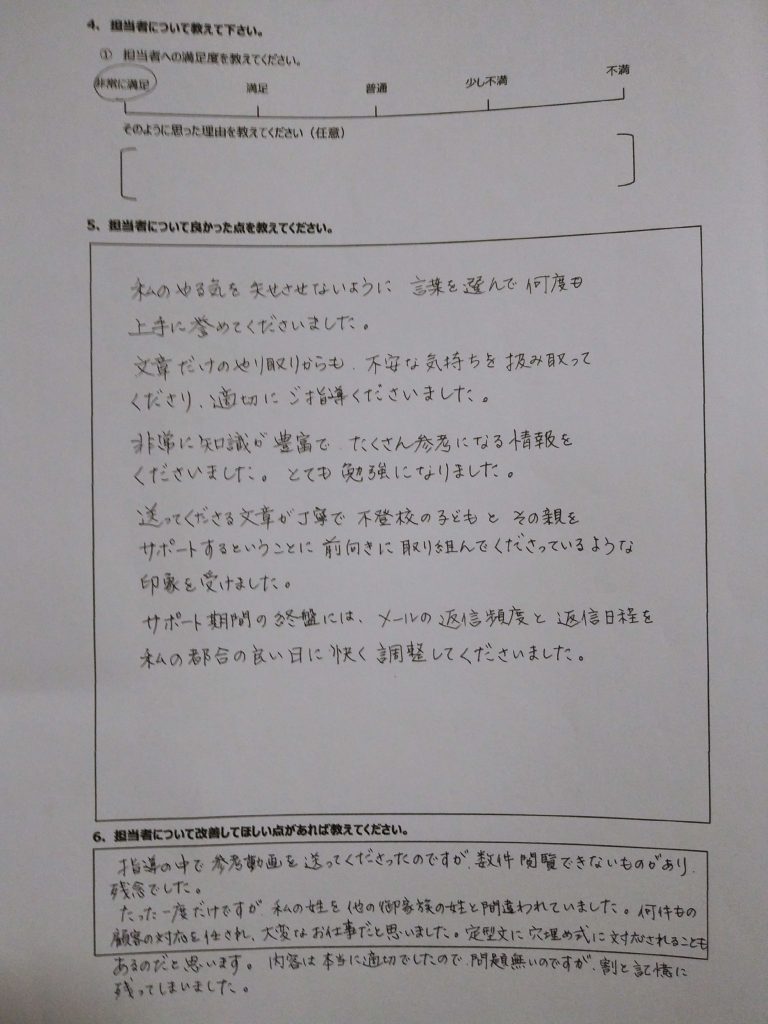 4、担当者について教えて下さい。
① 担当者への満足度を教えてください。
非常に満足 満足 普通 少し不満 不満
そのように思った理由を教えてください（任意）
5、担当者について良かった点を教えてください。
私のやる気を失せさせないように 言葉を選んで何度も
上手に誉めてくださいました。
文章だけのやり取りからも、不安な気持ちを扱み取って
くださり、適切にご指導くださいました。
非常に知識が豊富で、たくさん参考になる情報を
くださいました。とても勉強になりました。
送ってくださる文章が丁寧で 不登校の子どもと その親を
サポートするということに前向きに取り組んでくださっているような
印象を受けました。
サポート期間の終盤には、メールの返信頻度と返信日程を
私の都合の良い日に快く調整してくださいました。
6、担当者について改善してほしい点があれば教えてください。
指導の中で参考動画を送ってくださったのですが、数件閲覧できないものがあり、
残念でした。
たった一度だけですが 私の姓を他の御家族の姓と間違われていました。何件もの
顧客の対応を任され、大変なお仕事だと思いました。定型文に穴埋め式に対応されることも
あるのだと思います。 内容は本当に適切でしたので、問題無いのですが、割と記憶に
残ってしまいました。